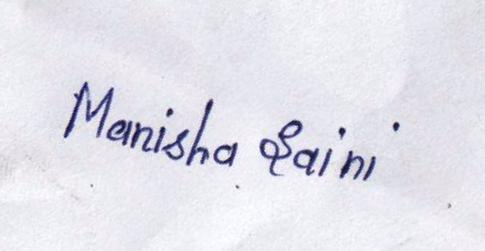 Manisha Saini